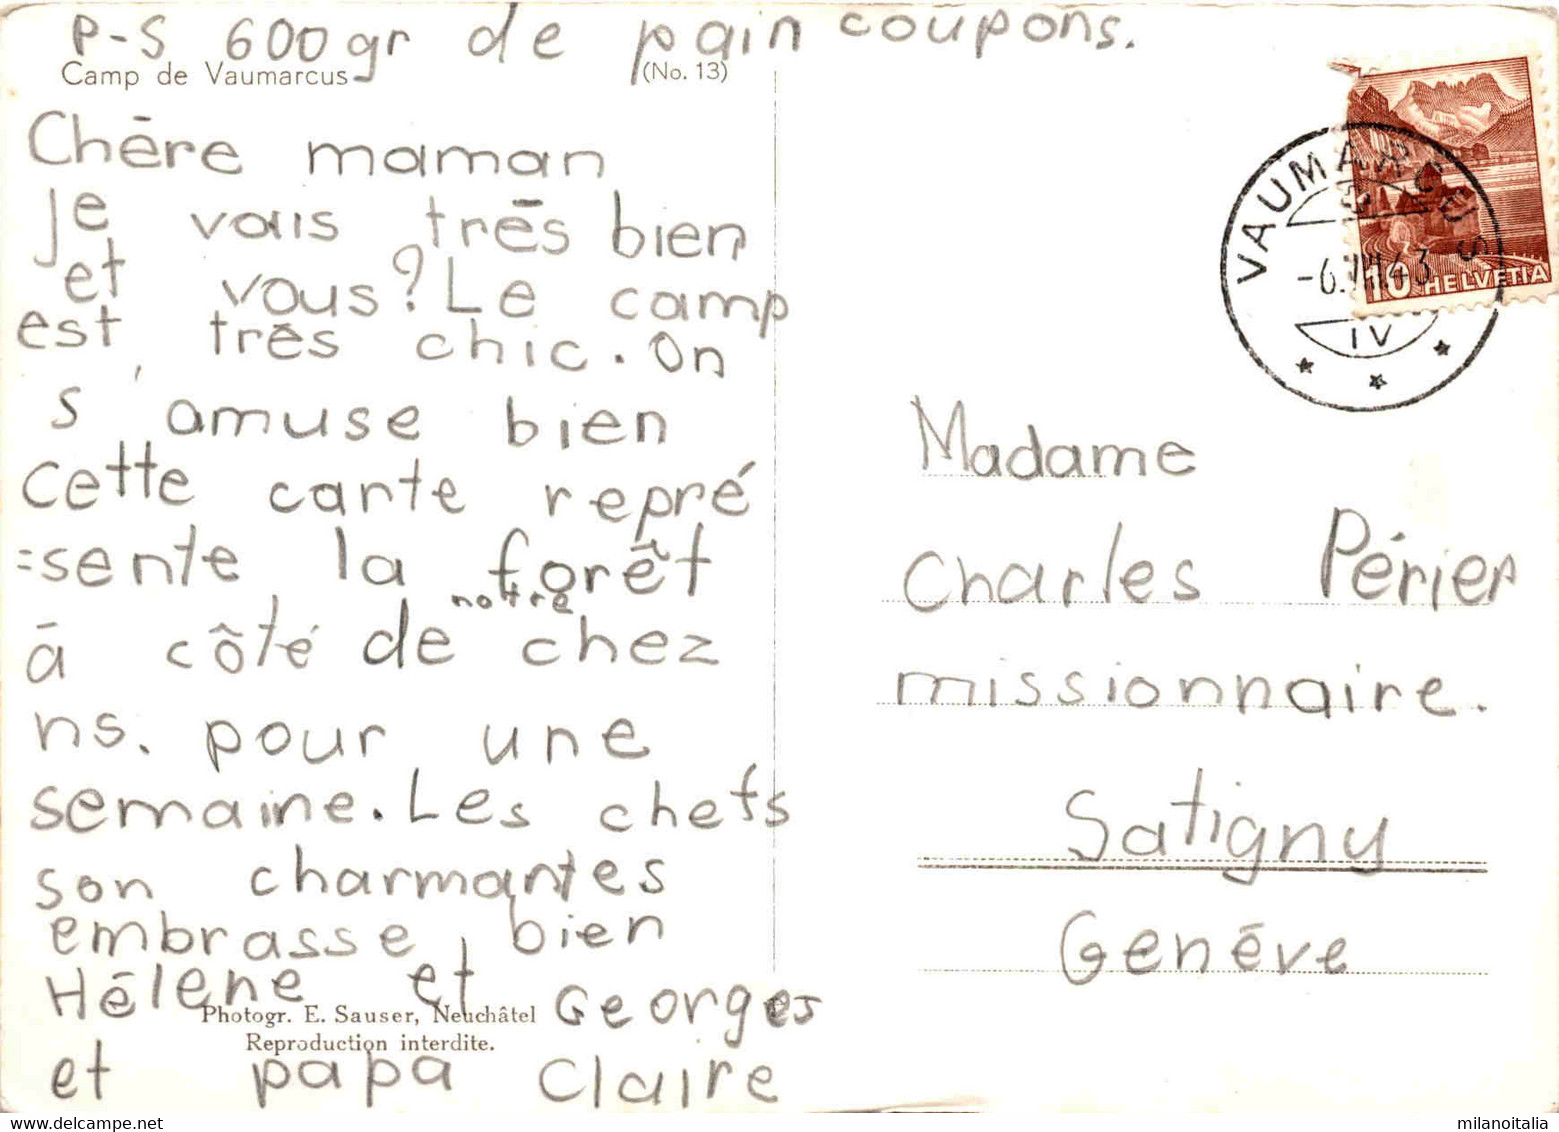 P-S 600gr de pain coupons.
Camp de Vaumarcus (No. 13)
Chēre maman
Je vais trēs bien
et vous? Le camp
est trēs chic. On
s'amuse bien
Cette carte repré
=sente la forēt
ā côté de notre chez
ns. pour une
semaine. Les chefs
son charmantes
embrasse bien
Hélène et Georges
Photogr. E. Sauser, Neuchâtel
Reproduction interdite.
et papa Claire
VAUMARCUS
-6.VIII.43
IV
10 HELVETIA
Madame
Charles Périer
missionnaire.
Satigny
Genēve
milanoitalia